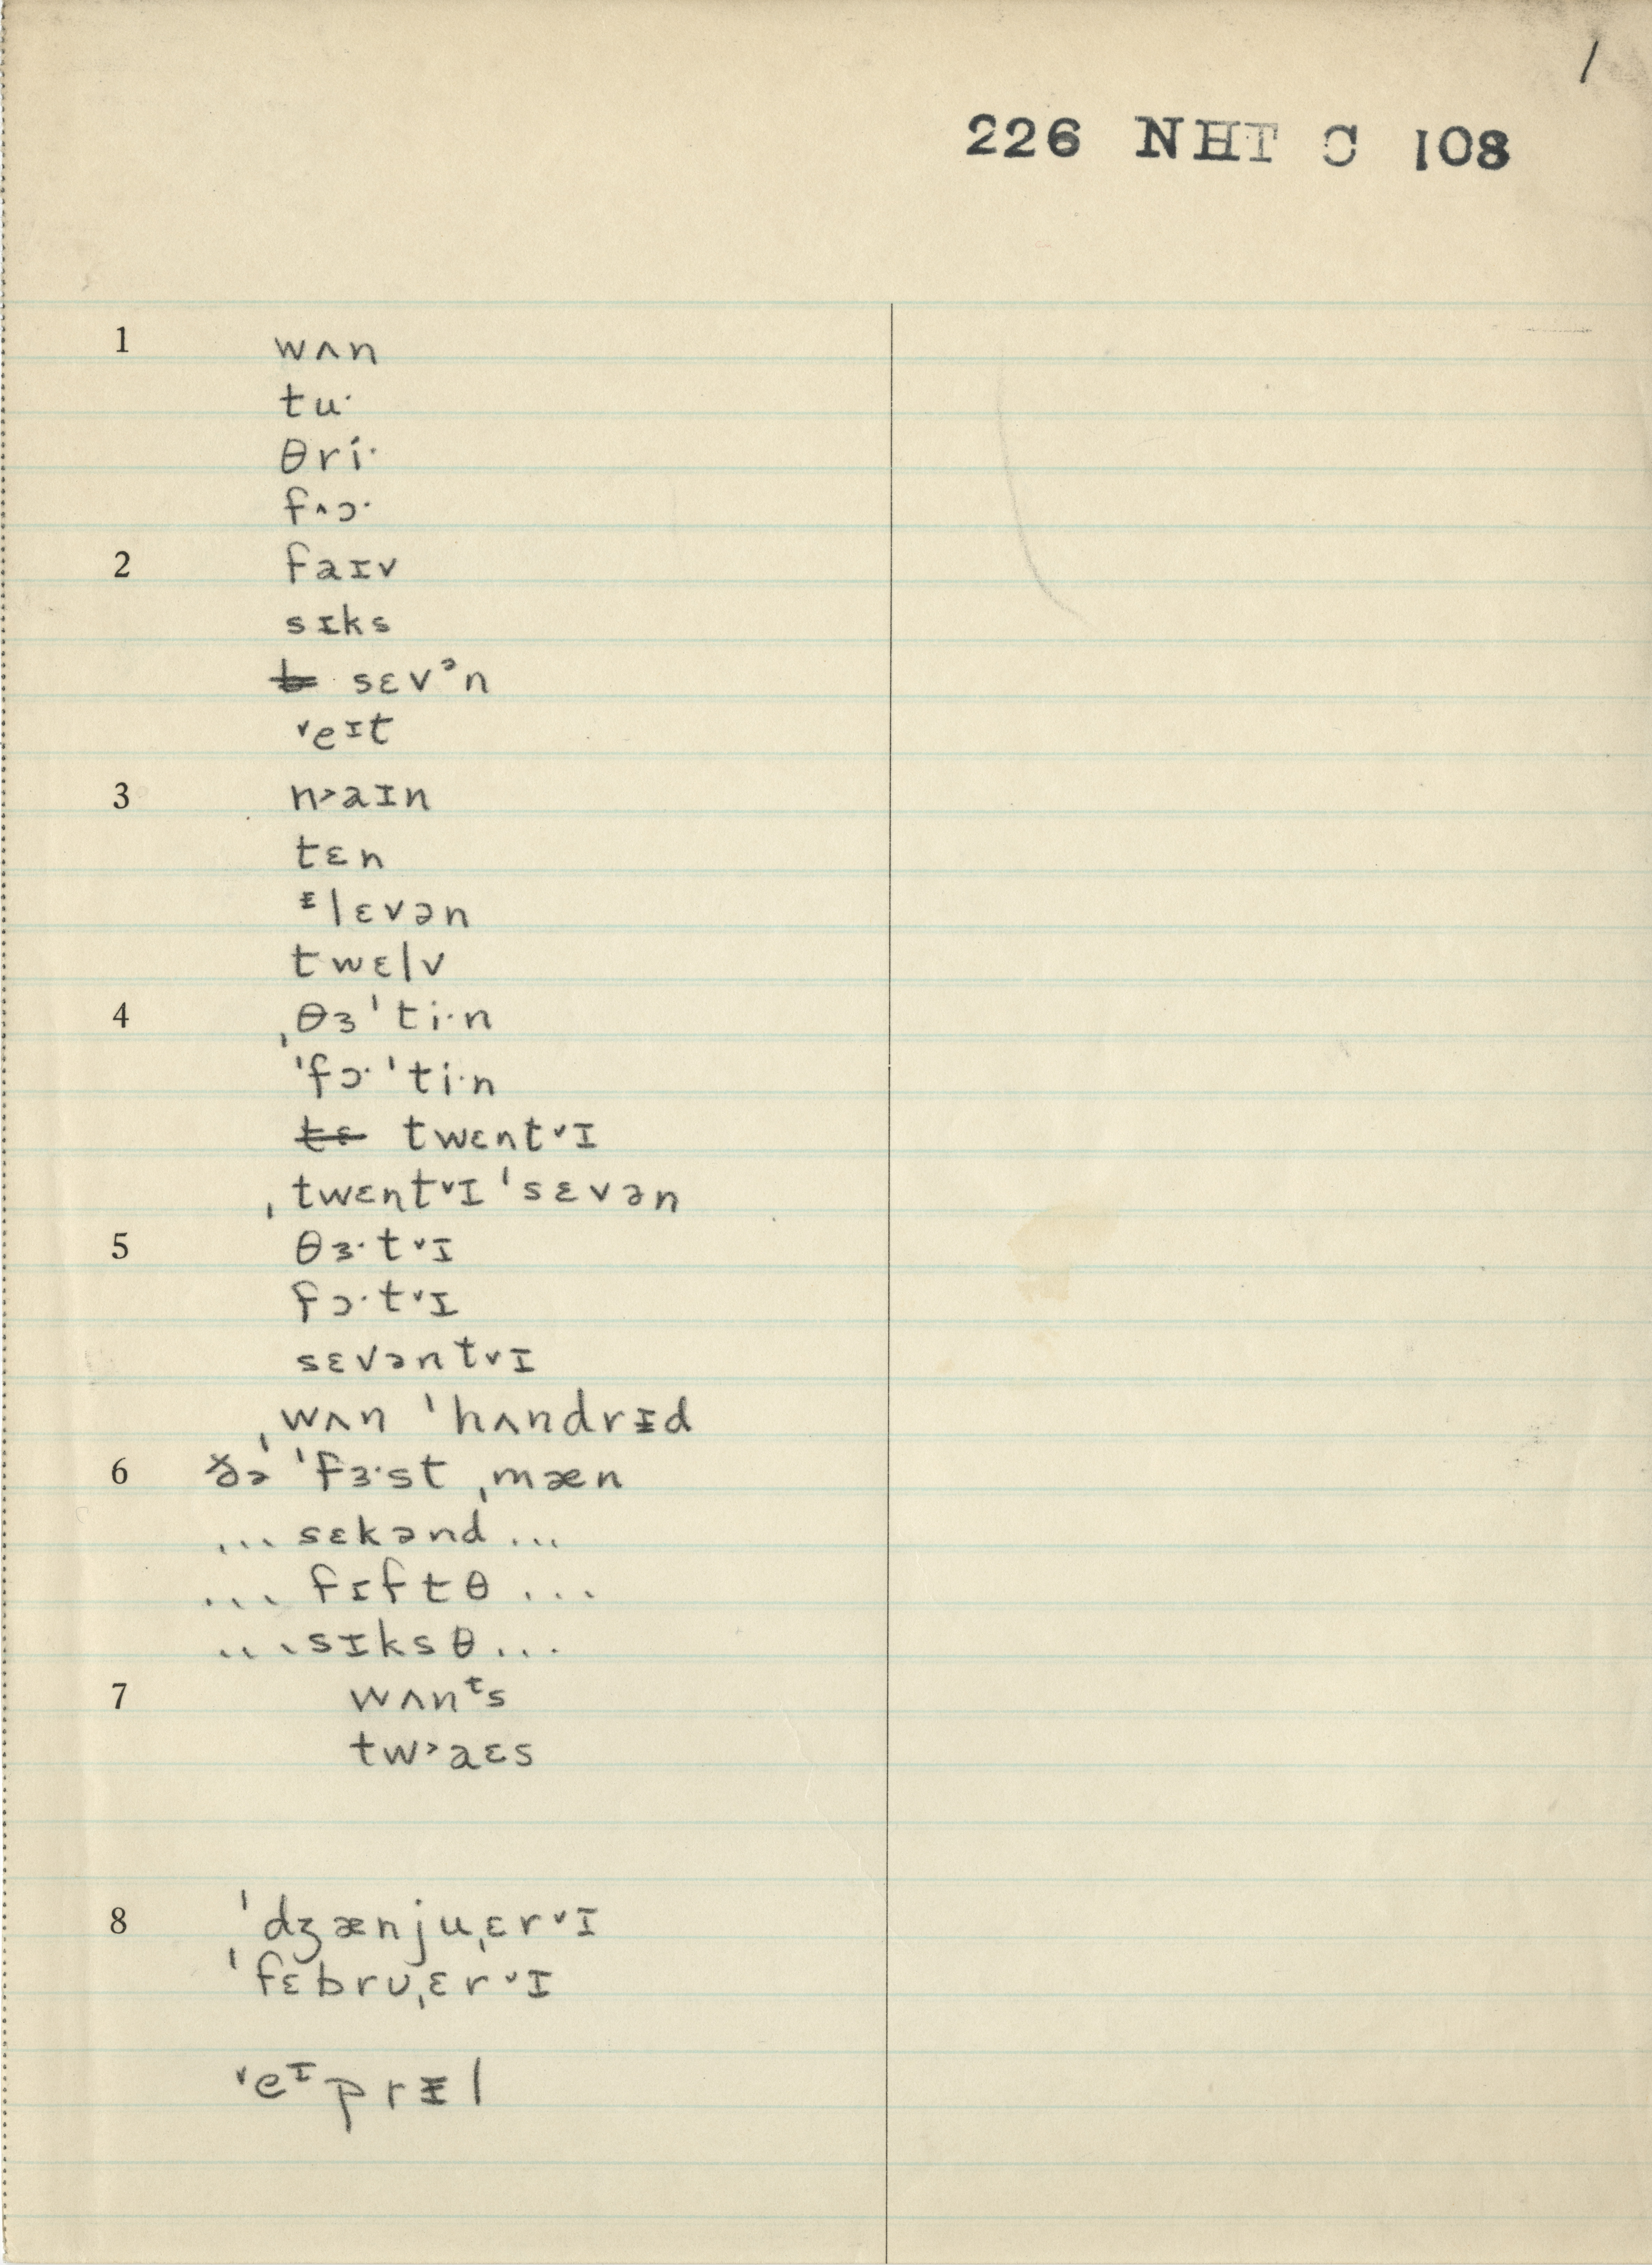 1
226 NHT C 108
1 wʌn
tuˑ
θriˑ
f˄ɔˑ
2 faɪv
sɪks
sɛvᵊn
˅eᶦt
3 n˃aɪn
tɛn
ᵻlɛvən
twɛlv
4 ˌθɜˈtiˑn
ˈfɔˑˈtiˑn
tɛ twɛnt˅ɪ
ˌtwɛnt˅ɪˈsɛvən
5 θɜˑt˅ɪ
fɔˑt˅ɪ
sɛvənt˅ɪ
ˌwʌn ˈhʌndrᵻd
6 ðə ˈfɜˑst ˌmæn
... sɛkənd ...
... fɪftθ ...
... sɪksθ ...
7 wʌnᵗs
tw˃aɛs
8 ˈdʒænjuˌɛr˅ɪ
ˈfɛbruˌɛr˅ɪ
˅eᶦprᵻl